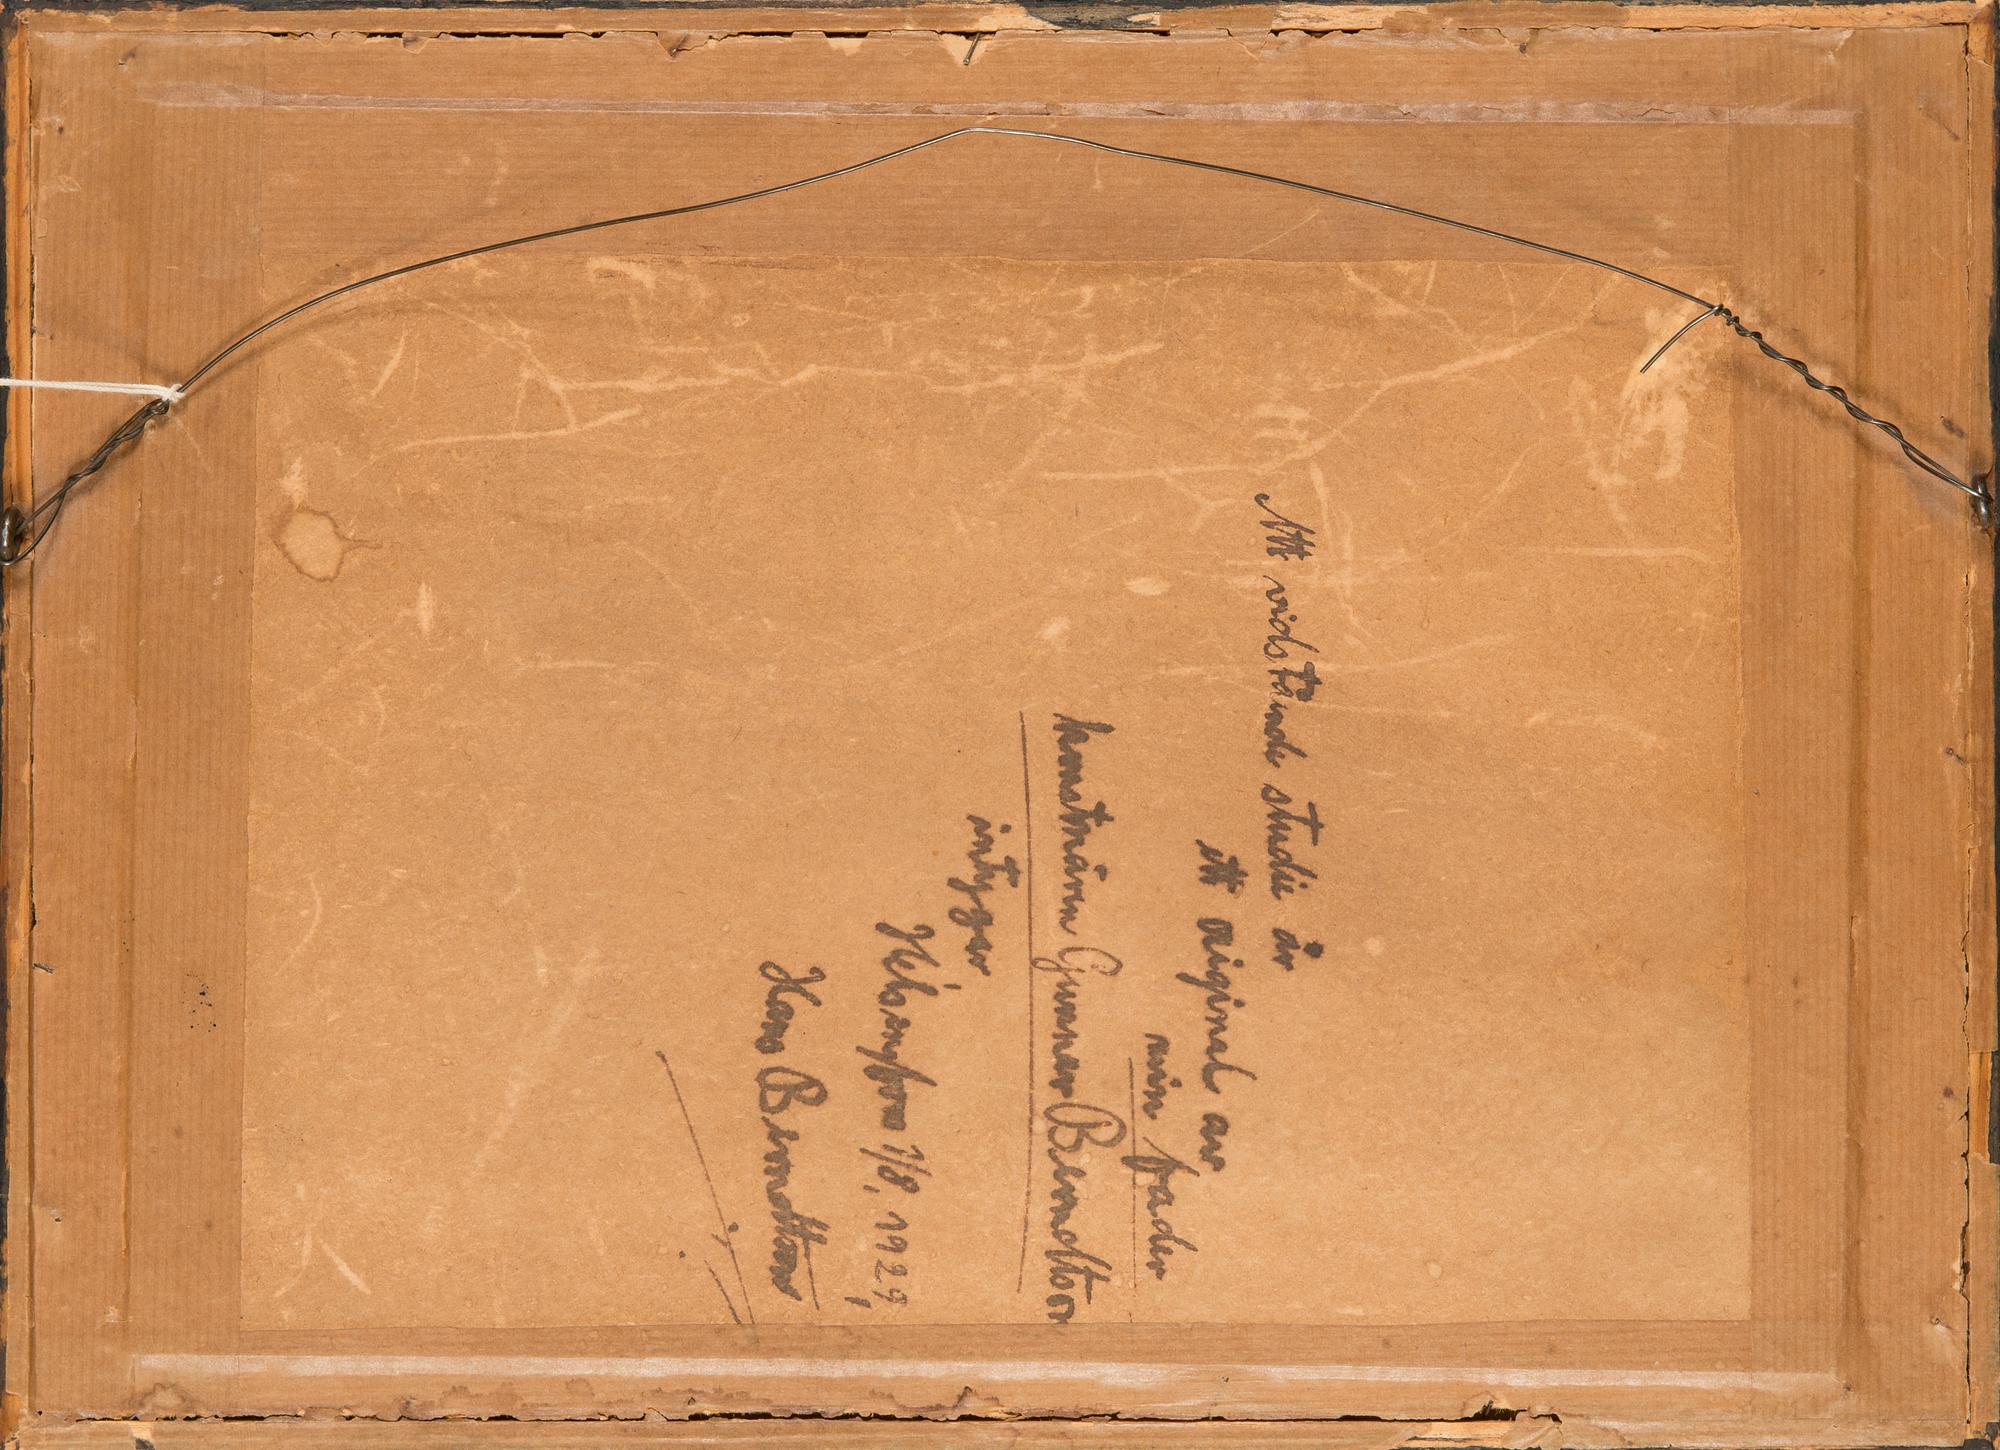 Att vidstående studie är
ett original av
min fader
konstnären Gunnar Berndtson
intygar,
Helsingfors 1/8, 1929,
Hans Berndtson